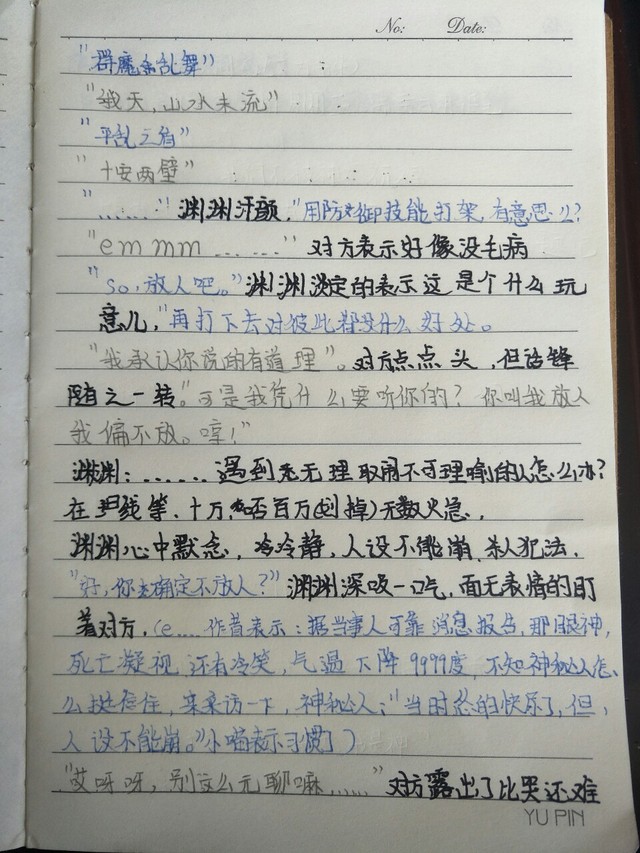 No: Date:
"群魔乱舞"
"我天,山水未流"
"平乱之盾"
"十安两壁"
"……"渊渊汗颜,"用防御技能打架,有意思么?
"emmm……"对方表示好像没毛病
"so,放人吧。"渊渊淡定的表示这是个什么玩
意儿,"再打下去对彼此都没什么好处。
"我承认你说的有道理"。对方点点头,但话锋
随之一转。"可是我凭什么要听你的?你叫我放人
我偏不放。哼!"
渊渊:……遇到无理取闹不可理喻的人怎么办?
在线等,十万百万(划掉)无数火急,
渊渊心中默念,冷冷静,人设不能崩.杀人犯法,
"好,你确定不放人?"渊渊深吸一口气,面无表情的盯
着对方,(e…作者表示:据当事人可靠消息报告,那眼神,
死亡凝视,还有冷笑,气温下降9999度,不知神秘人怎
么挺住,来采访一下,神秘人:"当时忍的快尿了,但,
人设不能崩。"小喵表示习惯了)
"艾呀呀,别这么无聊嘛……"对方露出了比哭还难
YU PIN